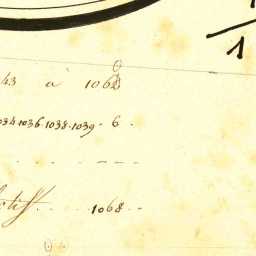 43 à 1068
1034.1036.1038.1039 - 6.
1068
1